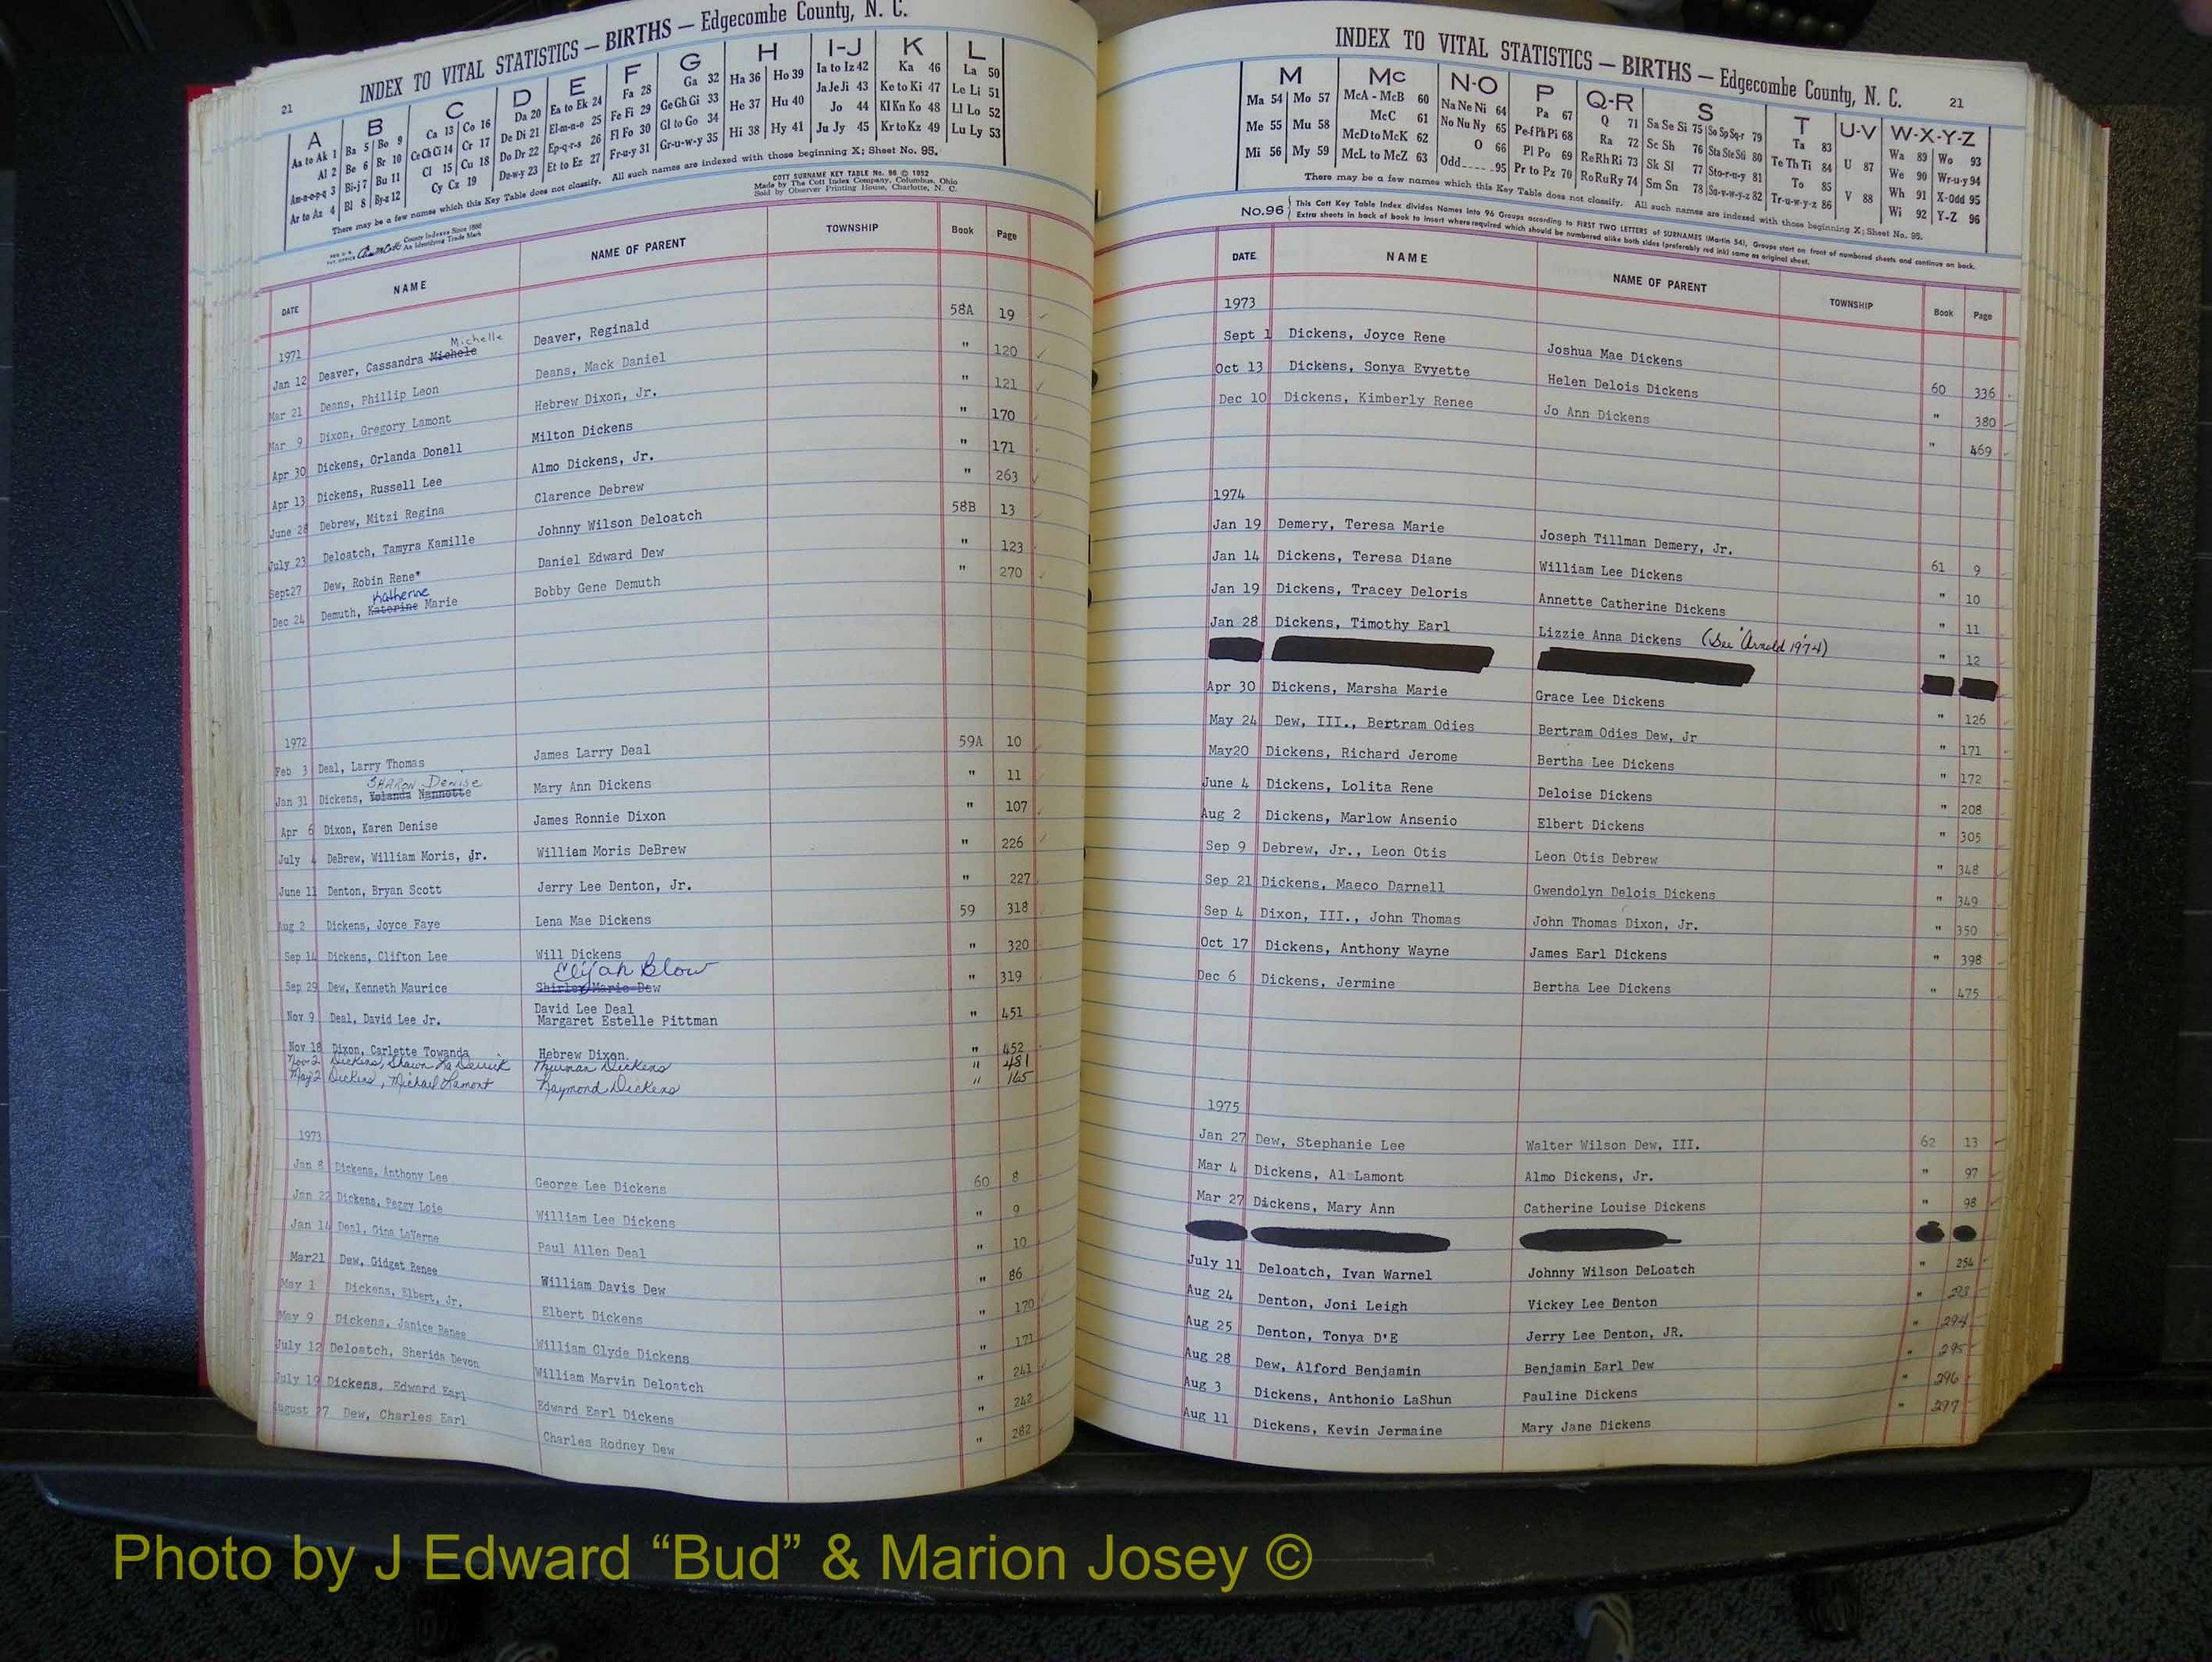 INDEX TO VITAL STATISTICS — BIRTHS — Edgecombe County, N. C.
21
A B C D E F G H I-J K L
Aa to Ak 1 Ba 5 Bo 9 Ca 13 Co 16 Da 20 Ea to Ek 24 Fa 28 Ga 32 Ha 36 Ho 39 Ia to Iz 42 Ka 46 La 50
Al 2 Be 6 Br 10 Ce Ch Ci 14 Cr 17 De Di 21 El-m-n-o 25 Fe Fi 29 Ge Gh Gi 33 He 37 Hu 40 Ja Je Ji 43 Ke to Ki 47 Le Li 51
Am-n-o-p-q 3 Bi-j 7 Bu 11 Cl 15 Cu 18 Do Dr 22 Ep-q-r-s 26 Fl Fo 30 Gl to Go 34 Hi 38 Hy 41 Jo 44 Kl Kn Ko 48 Ll Lo 52
Ar to Az 4 Bl 8 By-z 12 Cy Cz 19 Du-w-y 23 Et to Ez 27 Fr-u-y 31 Gr-u-w-y 35 Ju Jy 45 Kr to Kz 49 Lu Ly 53
There may be a few names which this Key Table does not classify. All such names are indexed with those beginning X; Sheet No. 95.
COTT SURNAME KEY TABLE No. 96 © 1952
Made by The Cott Index Company, Columbus, Ohio
Sold by Observer Printing House, Charlotte, N. C.
County Indexes Since 1888
An Identifying Trade Mark
DATE NAME NAME OF PARENT TOWNSHIP Book Page
1971
Michelle
Jan 12 Deaver, Cassandra Michele Deaver, Reginald 58A 19
Mar 21 Deans, Phillip Leon Deans, Mack Daniel " 120
Mar 9 Dixon, Gregory Lamont Hebrew Dixon, Jr. " 121
Apr 30 Dickens, Orlanda Donell Milton Dickens " 170
Apr 13 Dickens, Russell Lee Almo Dickens, Jr. " 171
June 28 Debrew, Mitzi Regina Clarence Debrew " 263
July 23 Deloatch, Tamyra Kamille Johnny Wilson Deloatch 58B 13
Sept27 Dew, Robin Rene* Daniel Edward Dew " 123
Katherine
Dec 24 Demuth, Katerine Marie Bobby Gene Demuth " 270
1972
Feb 3 Deal, Larry Thomas James Larry Deal 59A 10
SHARON Denise
Jan 31 Dickens, Yolanda Nannette Mary Ann Dickens " 11
Apr 6 Dixon, Karen Denise James Ronnie Dixon " 107
July 4 DeBrew, William Moris, Jr. William Moris DeBrew " 226
June 11 Denton, Bryan Scott Jerry Lee Denton, Jr. " 227
Aug 2 Dickens, Joyce Faye Lena Mae Dickens 59 318
Sep 14 Dickens, Clifton Lee Will Dickens " 320
Elijah Blow
Sep 29 Dew, Kenneth Maurice Shirley Marie Dew " 319
Nov 9 Deal, David Lee Jr. David Lee Deal " 451
Margaret Estelle Pittman
Nov 18 Dixon, Carlette Towanda Hebrew Dixon. " 452
Nov 2 Dickens, Shawn LaDerrick Thurman Dickens " 481
May 2 Dickens, Michael Lamont Raymond Dickens " 165
1973
Jan 8 Dickens, Anthony Lee George Lee Dickens 60 8
Jan 22 Dickens, Peggy Lois William Lee Dickens " 9
Jan 14 Deal, Gina LaVerne Paul Allen Deal " 10
Mar21 Dew, Gidget Renee William Davis Dew " 86
May 1 Dickens, Elbert, Jr. Elbert Dickens " 170
May 9 Dickens, Janice Renee William Clyde Dickens " 171
July 12 Deloatch, Sherida Devon William Marvin Deloatch " 241
July 19 Dickens, Edward Earl Edward Earl Dickens " 242
August 27 Dew, Charles Earl Charles Rodney Dew " 282
INDEX TO VITAL STATISTICS — BIRTHS — Edgecombe County, N. C.
21
M Mc N-O P Q-R S T U-V W-X-Y-Z
Ma 54 Mo 57 McA - McB 60 Na Ne Ni 64 Pa 67 Q 71 Sa Se Si 75 So Sp Sq-r 79 Ta 83 U 87 Wa 89 Wo 93
Me 55 Mu 58 McC 61 No Nu Ny 65 Pe-f Ph Pi 68 Ra 72 Sc Sh 76 Sta Ste Sti 80 Te Th Ti 84 V 88 We 90 Wr-u-y 94
Mi 56 My 59 McD to McK 62 O 66 Pl Po 69 Re Rh Ri 73 Sk Sl 77 Sto-r-u-y 81 To 85 Wh 91 X-Odd 95
McL to McZ 63 Odd 95 Pr to Pz 70 Ro Ru Ry 74 Sm Sn 78 Su-v-w-y-z 82 Tr-u-w-y-z 86 Wi 92 Y-Z 96
There may be a few names which this Key Table does not classify. All such names are indexed with those beginning X; Sheet No. 95.
No.96 This Cott Key Table Index divides Names into 96 Groups according to FIRST TWO LETTERS of SURNAMES (Martin 54), Groups start on front of numbered sheets and continue on back.
Extra sheets in back of book to insert where required which should be numbered alike both sides (preferably red ink) same as original sheet.
DATE NAME NAME OF PARENT TOWNSHIP Book Page
1973
Sept 1 Dickens, Joyce Rene Joshua Mae Dickens 60 336
Oct 13 Dickens, Sonya Evyette Helen Delois Dickens " 380
Dec 10 Dickens, Kimberly Renee Jo Ann Dickens " 469
1974
Jan 19 Demery, Teresa Marie Joseph Tillman Demery, Jr. 61 9
Jan 14 Dickens, Teresa Diane William Lee Dickens " 10
Jan 19 Dickens, Tracey Deloris Annette Catherine Dickens " 11
Jan 28 Dickens, Timothy Earl Lizzie Anna Dickens (See "Arnold 1974) " 12
Apr 30 Dickens, Marsha Marie Grace Lee Dickens " 126
May 24 Dew, III., Bertram Odies Bertram Odies Dew, Jr " 171
May20 Dickens, Richard Jerome Bertha Lee Dickens " 172
June 4 Dickens, Lolita Rene Deloise Dickens " 208
Aug 2 Dickens, Marlow Ansenio Elbert Dickens " 305
Sep 9 Debrew, Jr., Leon Otis Leon Otis Debrew " 348
Sep 21 Dickens, Maeco Darnell Gwendolyn Delois Dickens " 349
Sep 4 Dixon, III., John Thomas John Thomas Dixon, Jr. " 350
Oct 17 Dickens, Anthony Wayne James Earl Dickens " 398
Dec 6 Dickens, Jermine Bertha Lee Dickens " 475
1975
Jan 27 Dew, Stephanie Lee Walter Wilson Dew, III. 62 13
Mar 4 Dickens, Al Lamont Almo Dickens, Jr. " 97
Mar 27 Dickens, Mary Ann Catherine Louise Dickens " 98
July 11 Deloatch, Ivan Warnel Johnny Wilson DeLoatch " 254
Aug 24 Denton, Joni Leigh Vickey Lee Denton "
Aug 25 Denton, Tonya D'E Jerry Lee Denton, JR. " 294
Aug 28 Dew, Alford Benjamin Benjamin Earl Dew " 295
Aug 3 Dickens, Anthonio LaShun Pauline Dickens " 296
Aug 11 Dickens, Kevin Jermaine Mary Jane Dickens " 297
Photo by J Edward “Bud” & Marion Josey ©